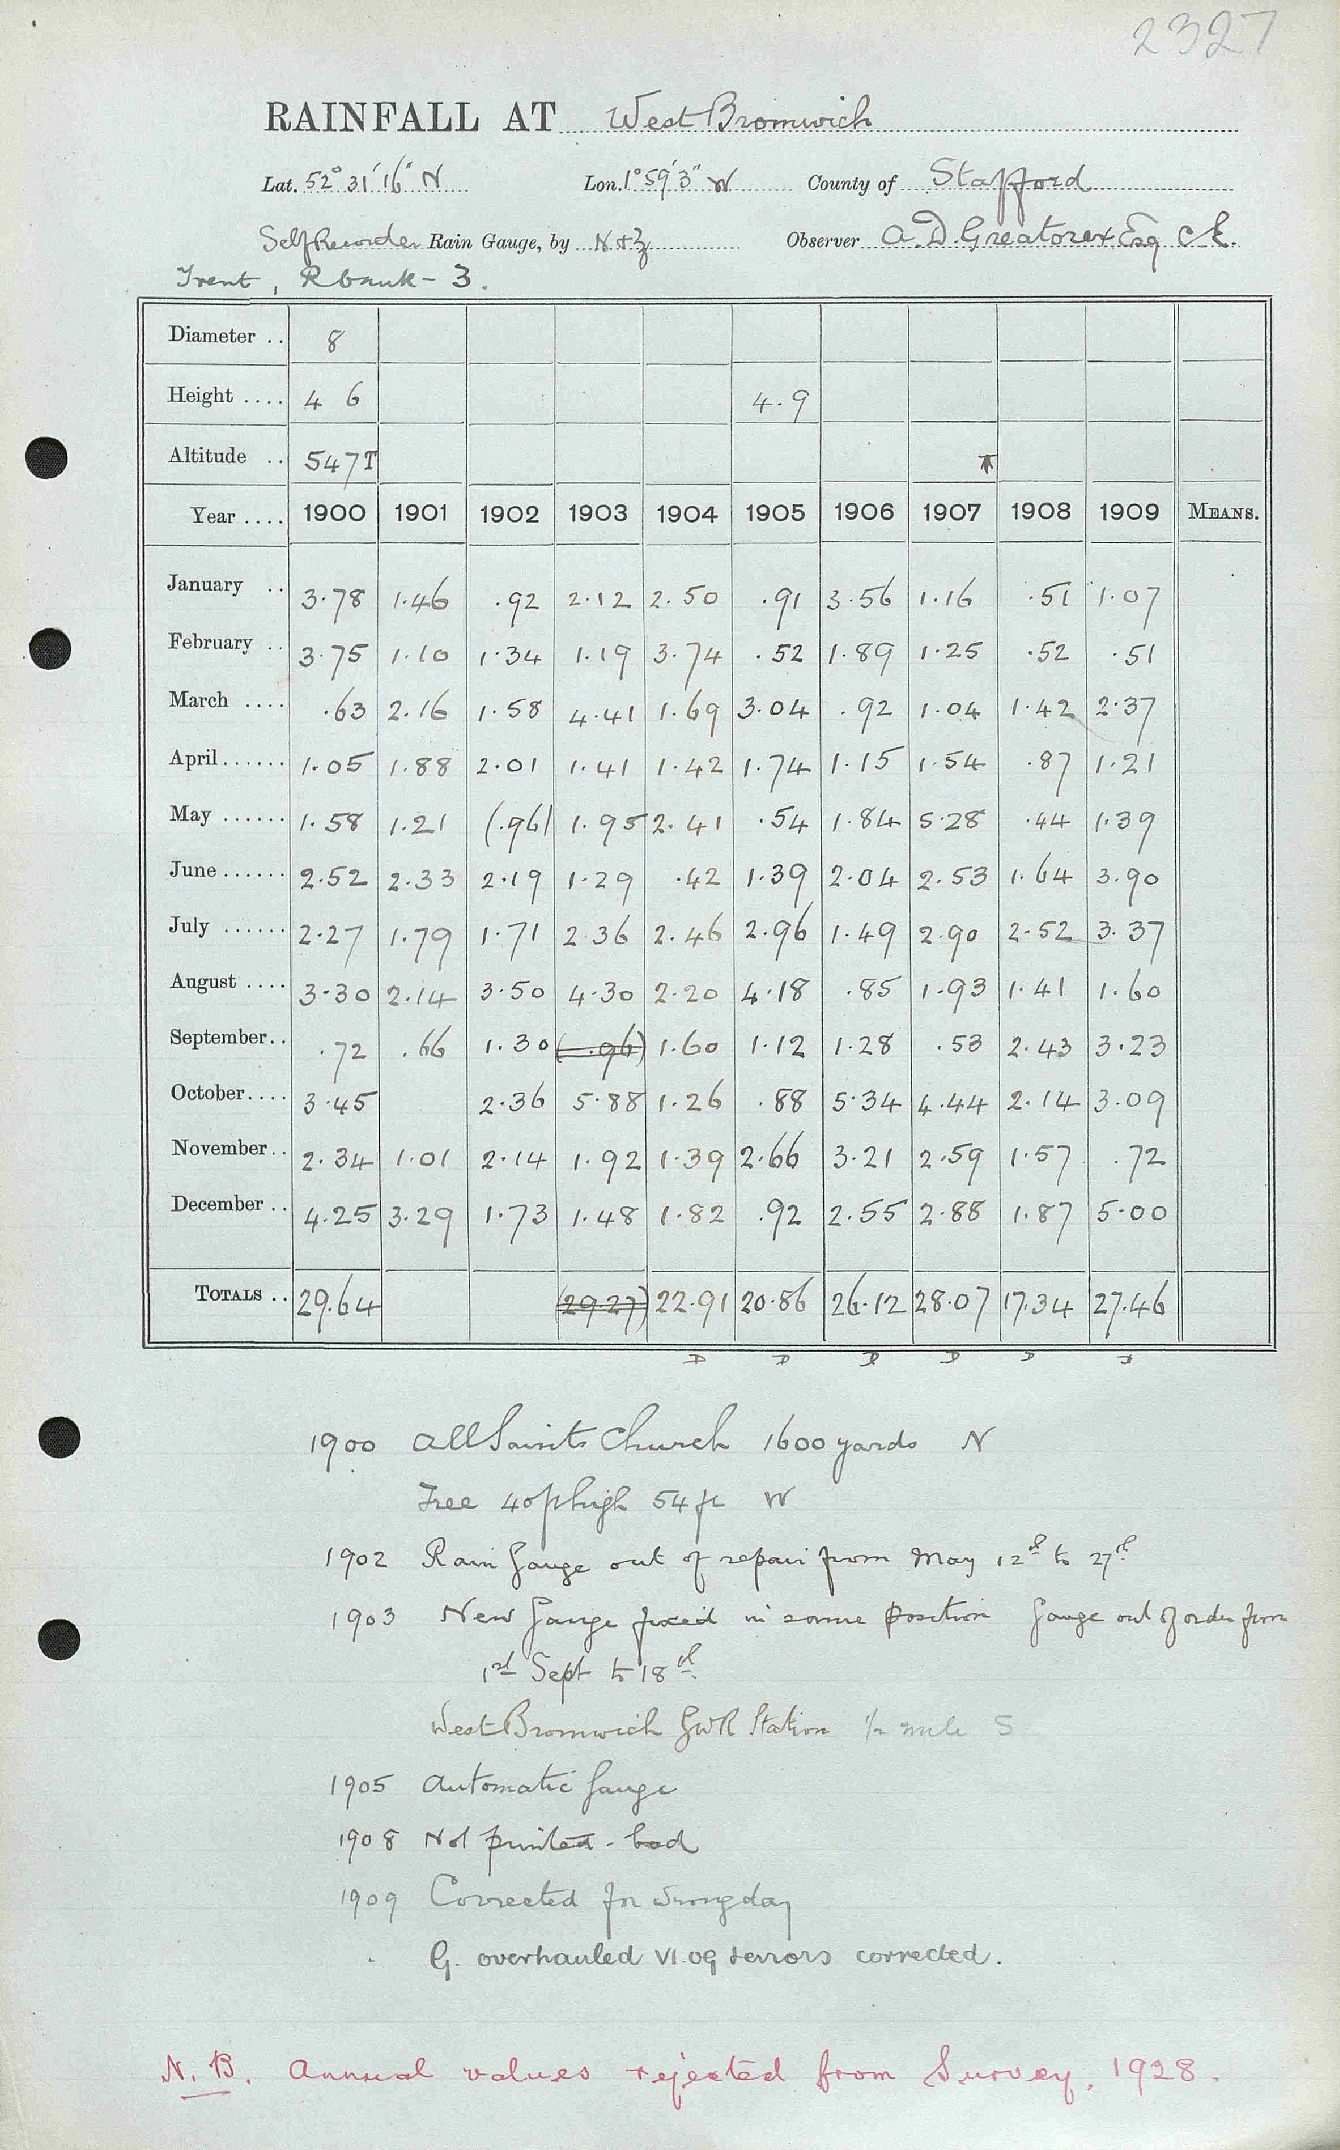 2327
RAINFALL AT West Bromwich
Lat. 52° 31' 16" N Lon. 1° 59' 3" W County of Stafford
Self Recorder Rain Gauge, by N & Z Observer A. D. Greatorex Esq C.E.
Trent, R bank - 3.
Diameter .. 8
Height .... 4 6 4.9
Altitude .. 547T
Year .... 1900 1901 1902 1903 1904 1905 1906 1907 1908 1909 MEANS.
January .. 3.78 1.46 .92 2.12 2.50 .91 3.56 1.16 .51 1.07
February .. 3.75 1.10 1.34 1.19 3.74 .52 1.89 1.25 .52 .51
March .... .63 2.16 1.58 4.41 1.69 3.04 .92 1.04 1.42 2.37
April...... 1.05 1.88 2.01 1.41 1.42 1.74 1.15 1.54 .87 1.21
May ...... 1.58 1.21 (.96) 1.95 2.41 .54 1.84 5.28 .44 1.39
June...... 2.52 2.33 2.19 1.29 .42 1.39 2.04 2.53 1.64 3.90
July ...... 2.27 1.79 1.71 2.36 2.46 2.96 1.49 2.90 2.52 3.37
August .... 3.30 2.14 3.50 4.30 2.20 4.18 .85 1.93 1.41 1.60
September.. .72 .66 1.30 (.96) 1.60 1.12 1.28 .53 2.43 3.23
October.... 3.45 2.36 5.88 1.26 .88 5.34 4.44 2.14 3.09
November.. 2.34 1.01 2.14 1.92 1.39 2.66 3.21 2.59 1.57 .72
December .. 4.25 3.29 1.73 1.48 1.82 .92 2.55 2.88 1.87 5.00
TOTALS .. 29.64 (29.27) 22.91 20.86 26.12 28.07 17.34 27.46
1900 All Saints Church 1600 yards N
Tree 40ft high 54 ft W
1902 Rain Gauge out of repair from May 12th to 27th
1903 New Gauge fixed in same position Gauge out of order from
1st Sept to 18th
West Bromwich GWR Station ½ mile S
1905 Automatic Gauge
1908 Not printed - bad
1909 Corrected for wrong day
G. overhauled VI.09 & errors corrected.
N.B. Annual values rejected from Survey, 1928.